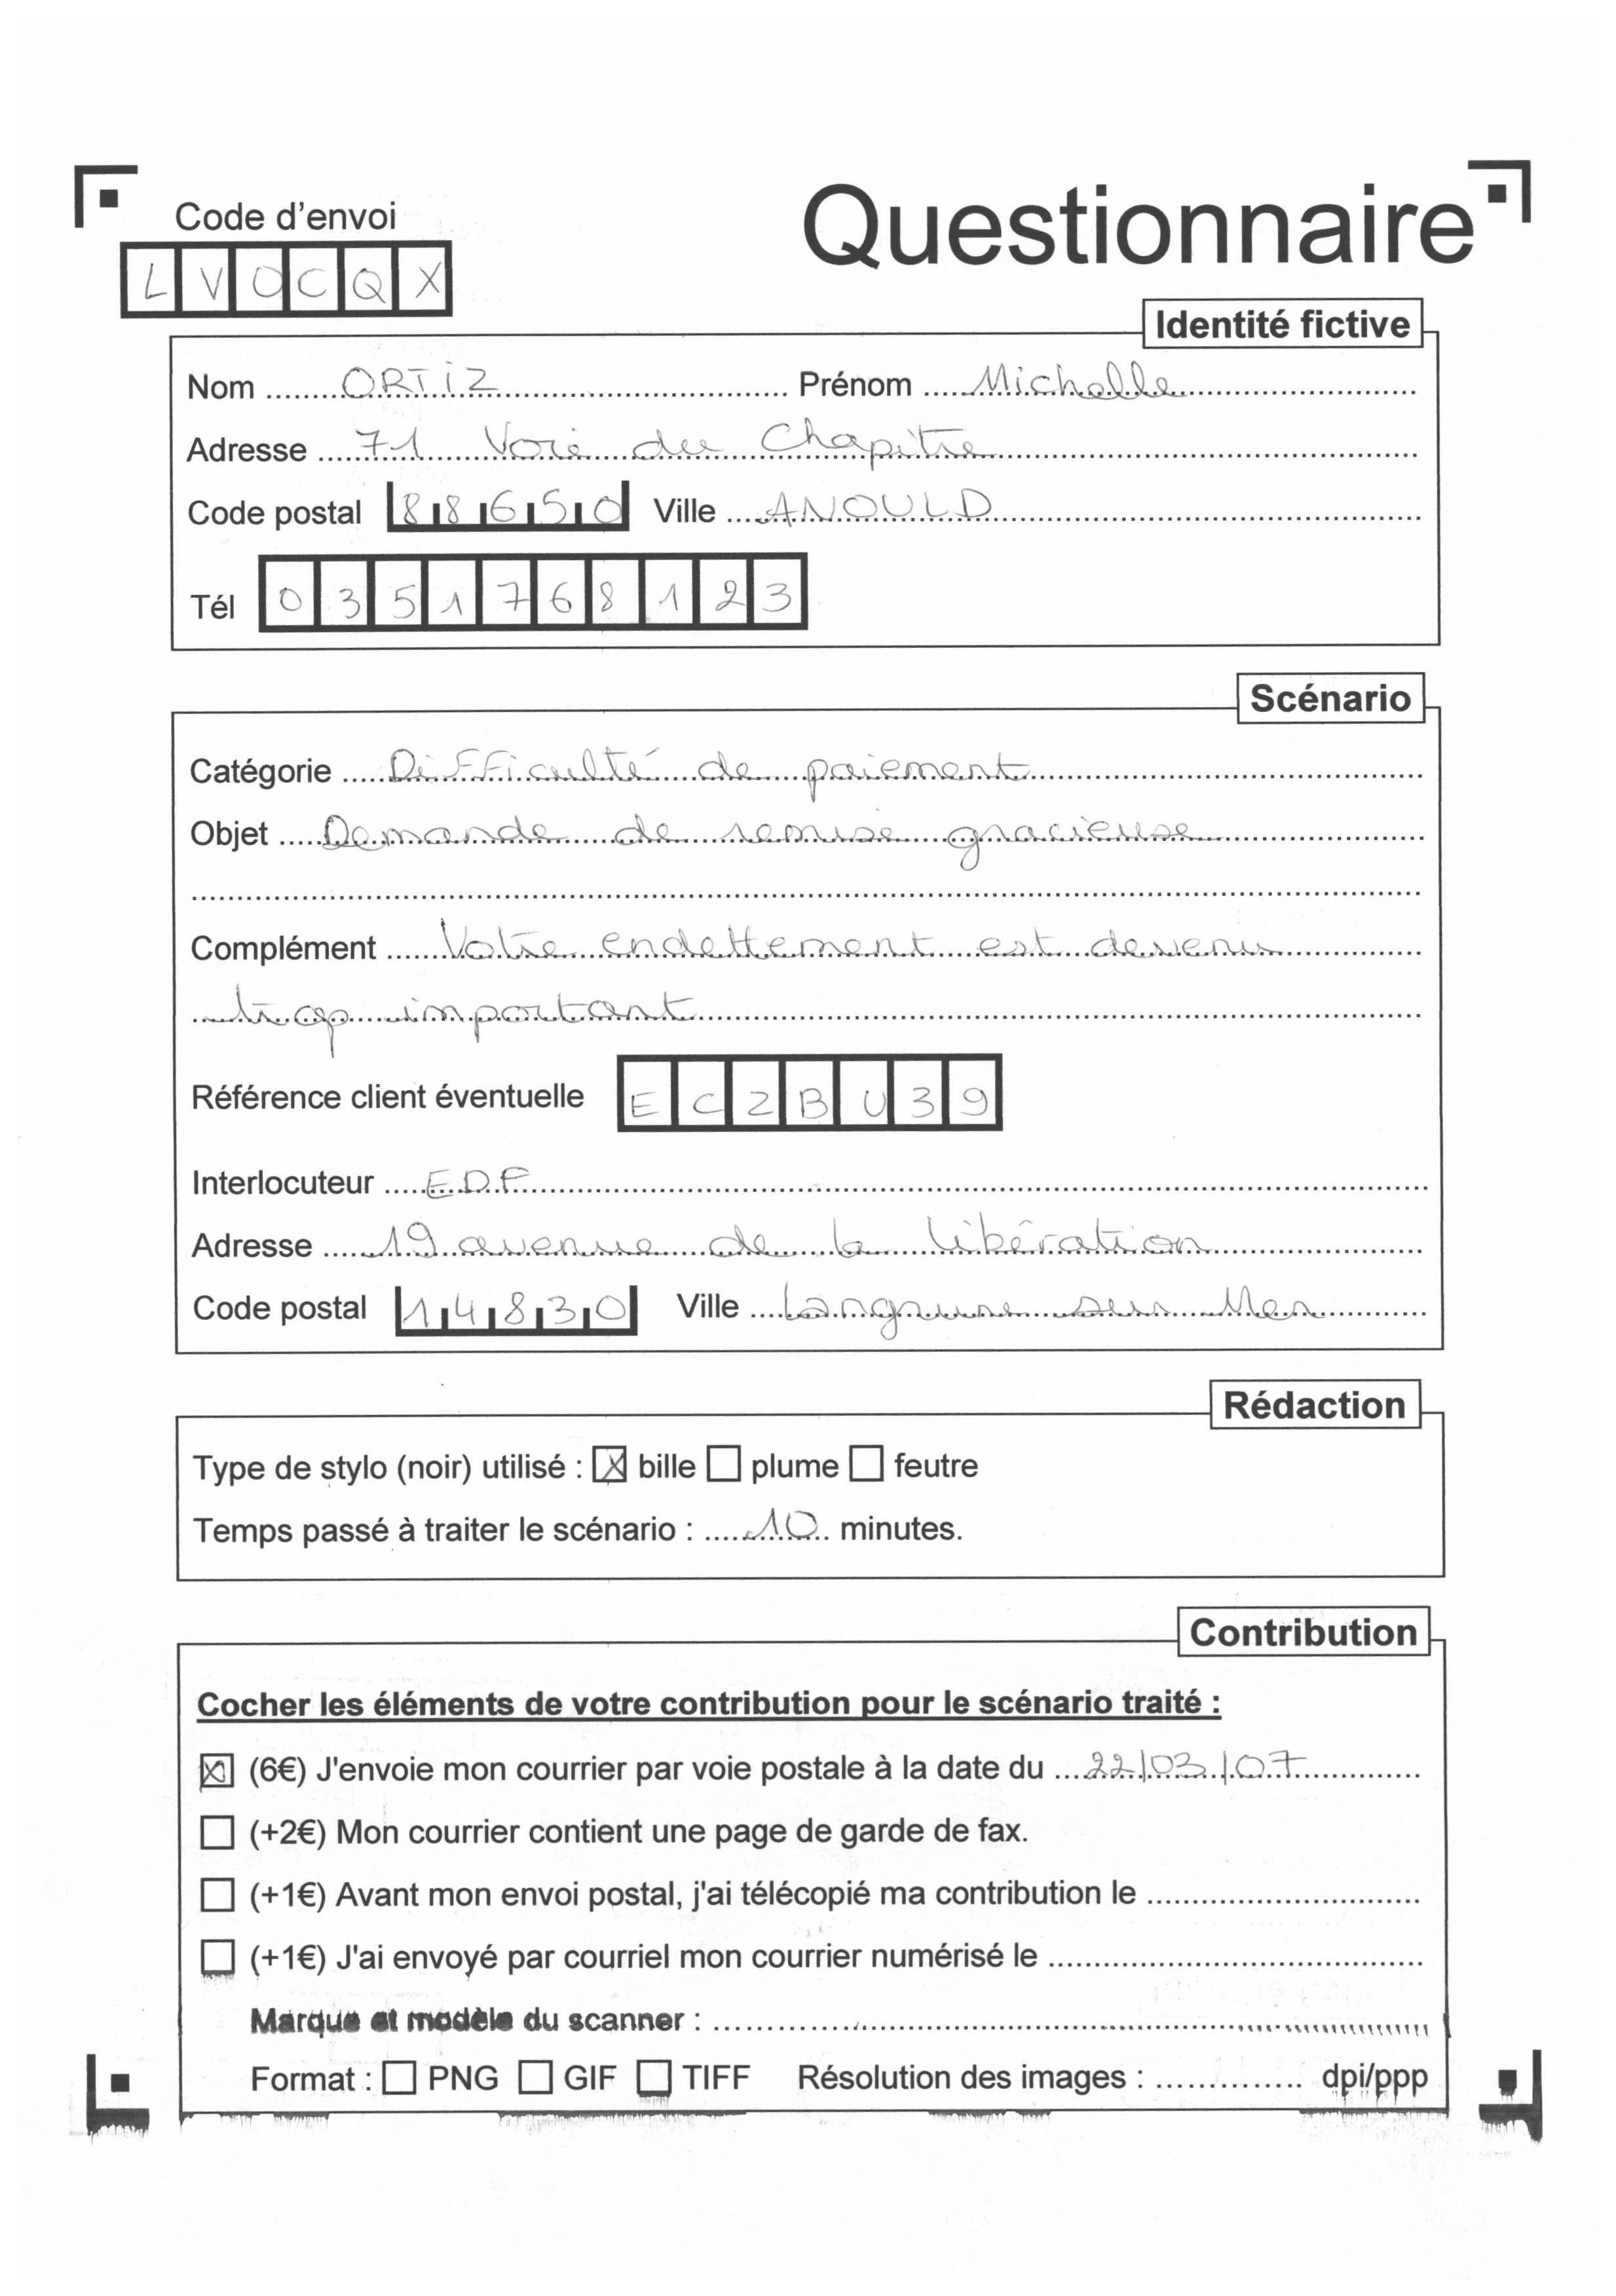 Code d'envoi
Questionnaire
LVOCQX
Identité fictive
Nom ORTiZ Prénom Michelle
Adresse 71 Voie du Chapitre
Code postal 88650 Ville ANOULD
Tél 0351768123
Scénario
Catégorie Difficulté de paiement
Objet Demande de remise gracieuse
Complément Votre endettement est devenu
trop important
Référence client éventuelle EC2BU39
Interlocuteur EDF
Adresse 19 avenue de la libération
Code postal 14830 Ville Langrune sur Mer
Rédaction
Type de stylo (noir) utilisé : ☒ bille ☐ plume ☐ feutre
Temps passé à traiter le scénario : 10 minutes.
Contribution
Cocher les éléments de votre contribution pour le scénario traité :
☒ (6€) J'envoie mon courrier par voie postale à la date du 22/03/07
☐ (+2€) Mon courrier contient une page de garde de fax.
☐ (+1€) Avant mon envoi postal, j'ai télécopié ma contribution le
☐ (+1€) J'ai envoyé par courriel mon courrier numérisé le
Marque et modèle du scanner :
Format : ☐ PNG ☐ GIF ☐ TIFF Résolution des images : dpi/ppp